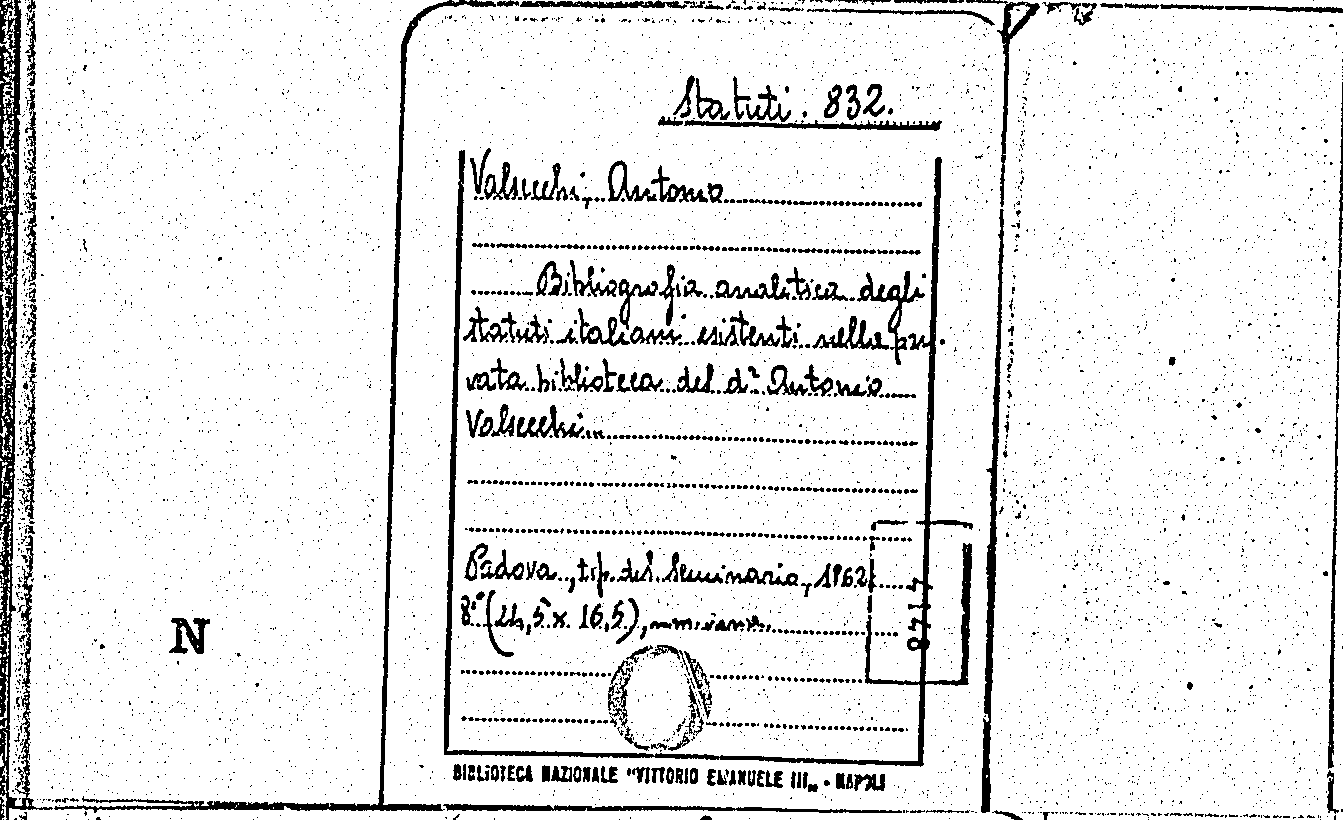 Statuti. 832.
Valsecchi, Antonio
Bibliografia analitica degli
statuti italiani esistenti nella pri-
vata biblioteca del d.r Antonio
Valsecchi.
Padova, tip. del Seminario, 1862
8° (24,5 x 16,5),
8717
N
BIBLIOTECA NAZIONALE "VITTORIO EMANUELE III" - NAPOLI